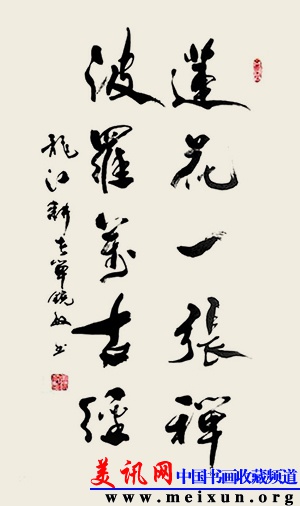 蓮花一張禪
波羅萬古經
龍江耕夫單銳敏書
美讯网 中国书画收藏频道
www.meixun.org